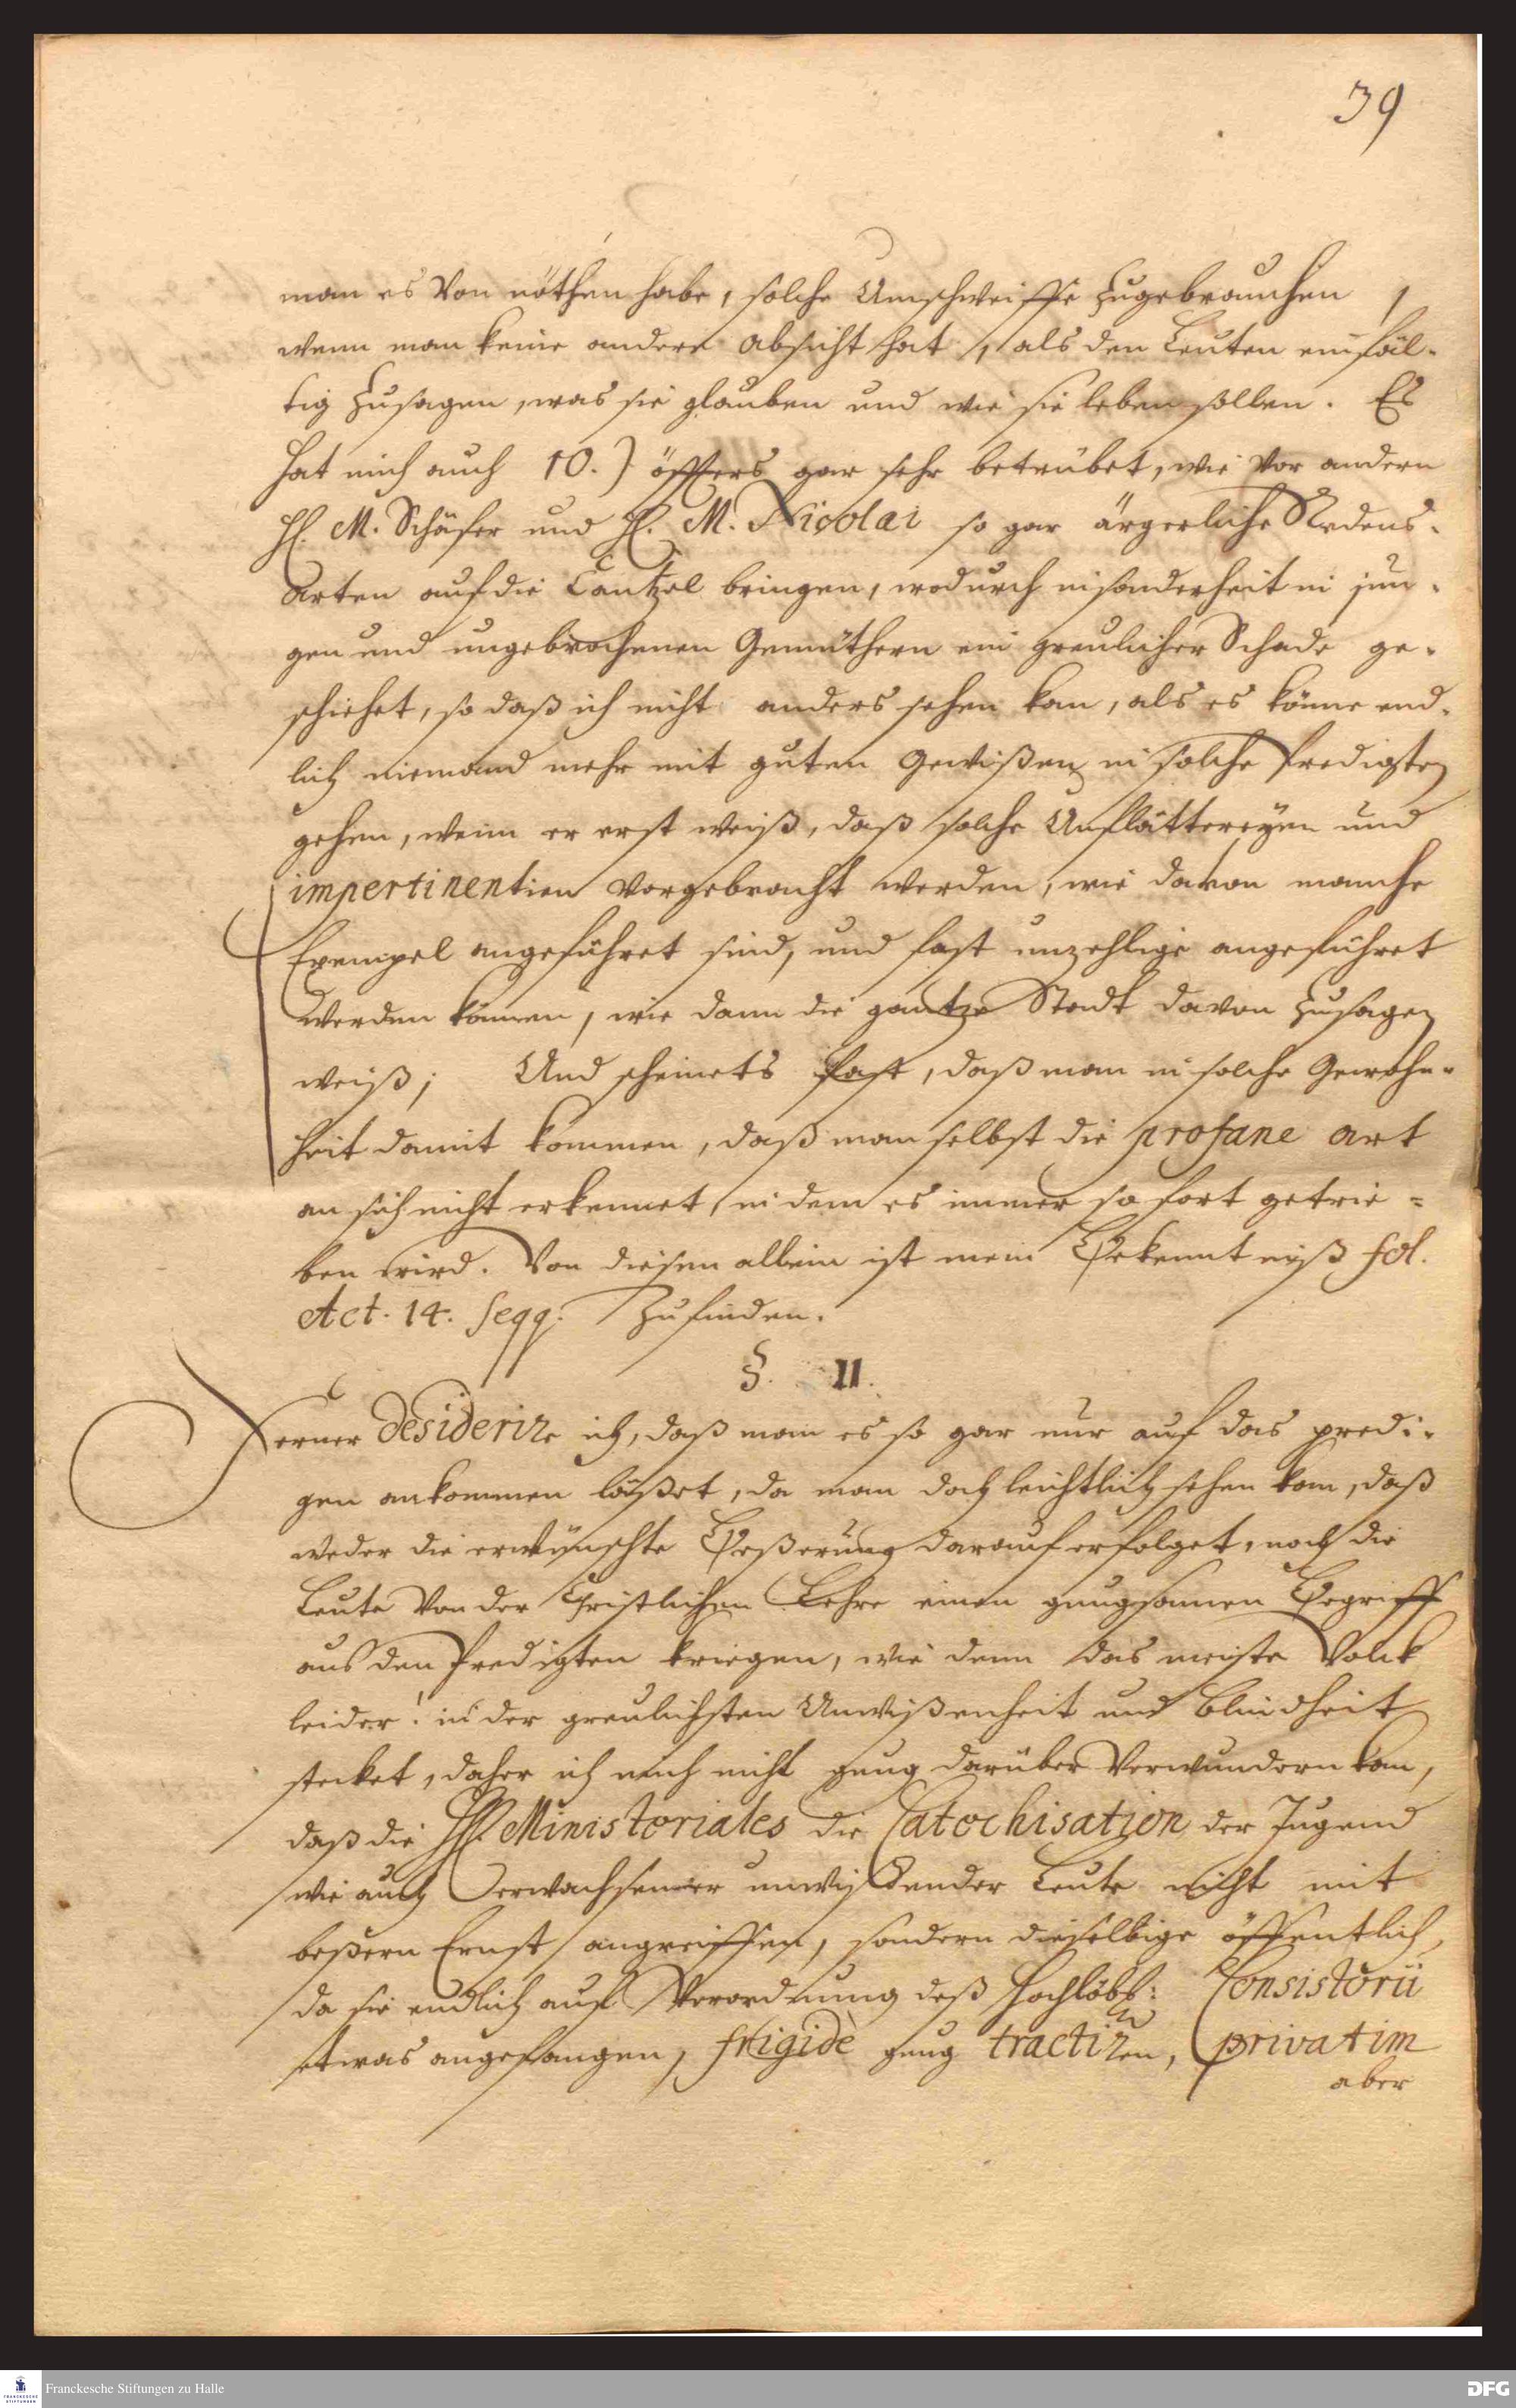 39
man es von nöthen habe, solche Umschweiffe zugebrauchen,
wenn man keine andere absicht hat, als den Leuten einfäl-
tig zusagen, was sie glauben und wie sie leben sollen. Es
hat mich auch 10.) öffters gar sehr betrübet, wie vor andern
H. M. Schäfer und H. M. Nicolai so gar ärgerliche Redens-
Arten auf die Cantzel bringen, wodurch insonderheit in jun-
gen und ungebrochenen Gemüthern ein greulicher Schade ge-
schiehet, so daß ich nicht anders sehen kan, als es könne end-
lich niemand mehr mit guten Gewißen in solche Predigten
gehen, wenn er erst weiß, daß solche Unflättereyen und
impertinentien vorgebracht werden, wie davon manche
Exempel angeführet sind, und fast unzehlige angeführet
werden können, wie dann die gantze Stadt davon zusagen
weiß; Und scheinets fast, daß man in solche Gewohn-
heit damit kommen, daß man selbst die profane art
an sich nicht erkennet, in dem es immer so fort getrie-
ben wird. Von diesen allein ist mein Bekenntniß fol.
Act. 14. seqq. zufinden.
§. II.
Ferner desiderire ich, daß man es so gar nur auf das predi-
gen ankommen läßet, da man doch leichtlich sehen kan, daß
weder die erwünschte Beßerung darauf erfolget, noch die
Leute von der Christlichen Lehre einen gnugsamen Begriff
aus den Predigten kriegen, wie denn das meiste Volck
leider! in der greulichsten Unwißenheit und blindheit
stecket, daher ich mich nicht gnug darüber verwundern kan,
daß die HH. Ministeriales die Catechisation der Jugend
wie auch erwachsener unwißender Leute nicht mit
beßern Ernst angreiffen, sondern dieselbige öffentlich,
da sie endlich auf Verordnung deß Hochlöbl: Consistorii
etwas angefangen, frigidè gnug tractiren, privatim
aber
Franckesche Stiftungen zu Halle
FRANCKESCHE STIFTUNGEN
DFG